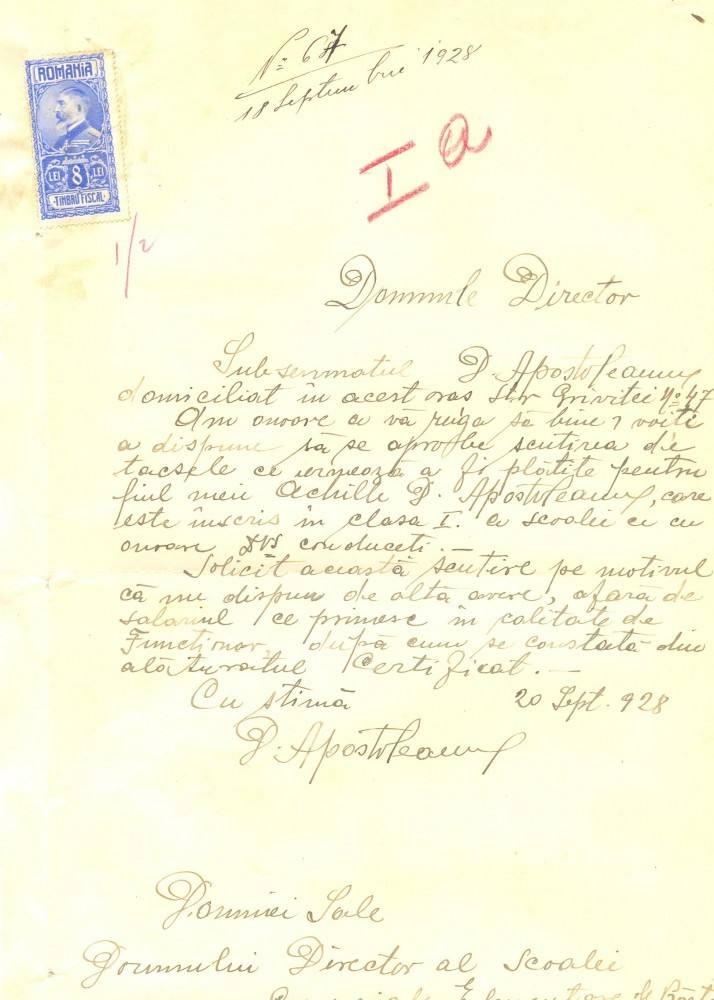 No 67
18 Septembrie 1928
ROMANIA
LEI 8 LEI
TIMBRU FISCAL
I a
1/2
Domnule Director
Subsemnatul D. Apostoleanu
domiciliat în acest oras Str Grivitei No 47
Am onoare a vă ruga să bine voiti
a dispune să se aprobe scutirea de
tacsele ce urmeoză a fi plătite pentru
fiul meu Achille D. Apostoleanu, care
este înscris în clasa I. a scoalei ce cu
onoare DVs conduceti. —
Solicit această scutire pe motivul
că nu dispun de alta avere, afara de
salariul ce primesc în calitate de
Functionar, după cum se constată din
alăturatul Certificat. —
Cu stimă 20 Sept. 928
D. Apostoleanu
Domniei Sale
Domnului Director al Scoalei
Elementare de Băeti